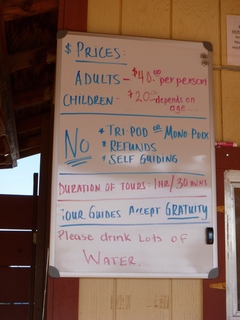 $ PRICES:
ADULTS - $40.00 per person
CHILDREN - $20.00 depends on
age
NO * TRI-POD OR MONO PODS
* REFUNDS
* SELF GUIDING
DURATION OF TOURS: 1HR/30 mins
TOUR GUIDES ACCEPT GRATUITY
Please drink Lots OF
WATER.